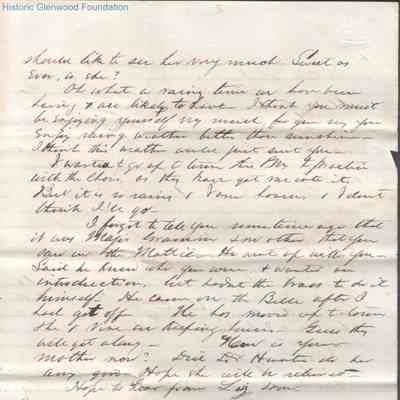 Historic Glenwood Foundation
should like to see her very much. Sweet as
ever, is she?
Oh what a rainy time we have been
having & are likely to have. I think you must
be enjoying yourself very much for you say you
enjoy rainy weather better than sunshine
I think this weather would just suit you.
I wanted to go up to town this to practice
with the Choir, as they have got me into it.
But it is so rainy & I don't
think I'll go.
I forgot to tell you sometime ago that
it was Major son other that you
saw on the Mattie. He went up with you.
Said he knew who you were, & wanted an
introduction, but hadn't the brass to do it
himself. He came on the Belle after I
had got off. He has moved up to town
She & Vine are keeping house. Guess they
will get along. How is your
mother now? Did Dr Hunter do her
any good. Hope she will be
Hope to hear from Liz soon